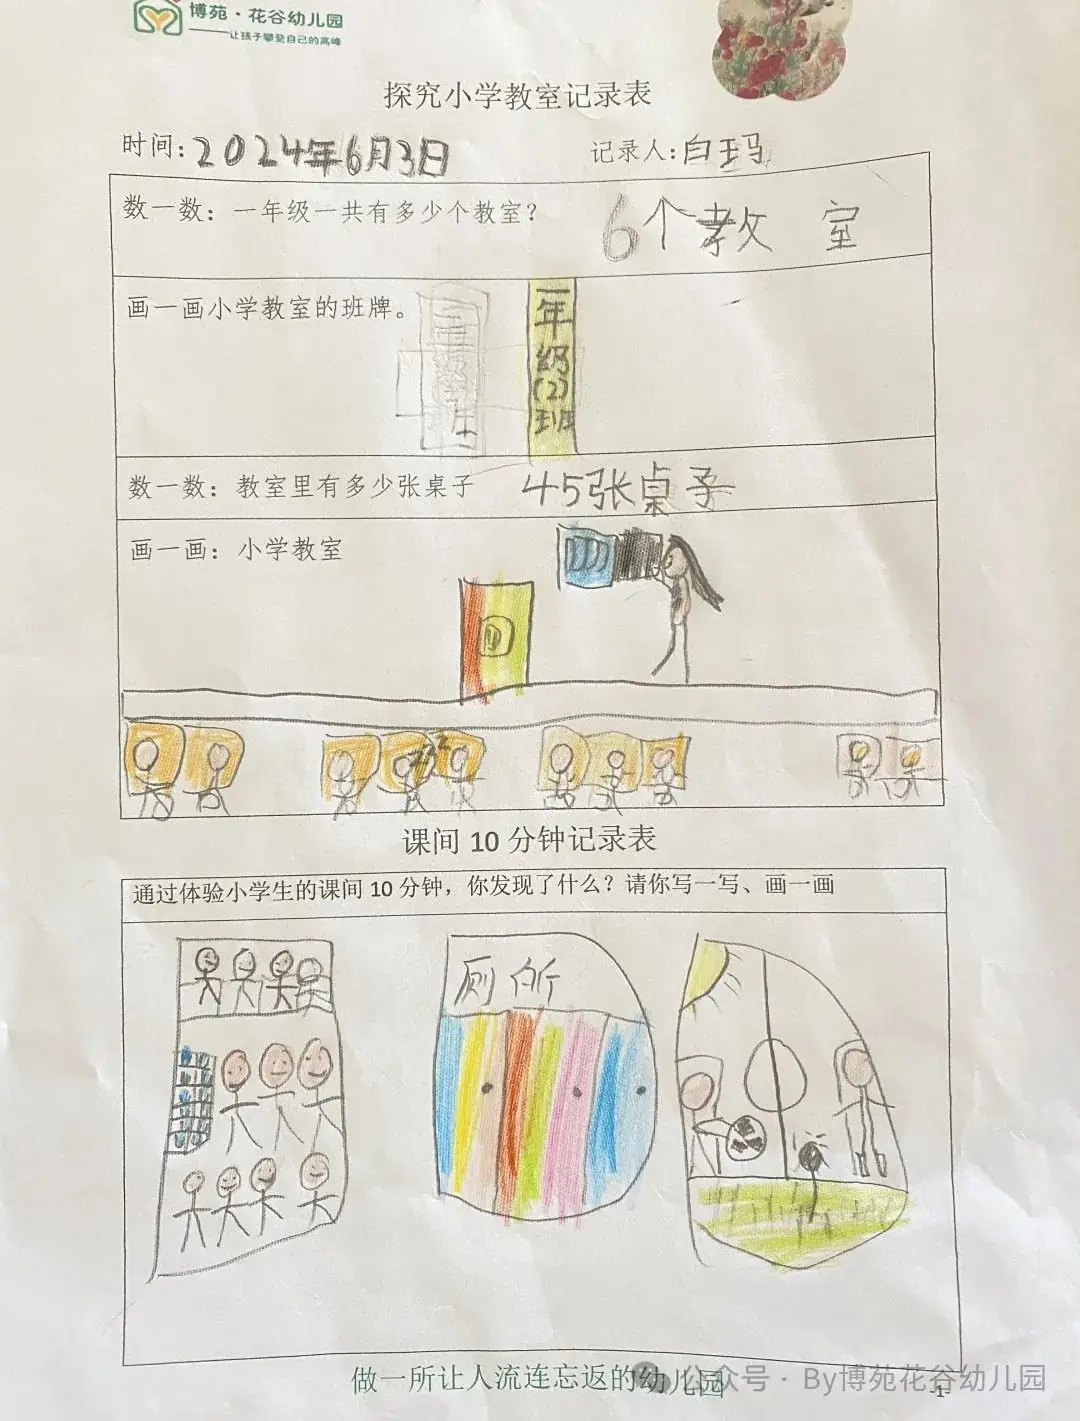 博苑·花谷幼儿园
——让孩子攀登自己的高峰
探究小学教室记录表
时间:2024年6月3日 记录人:白玛
数一数：一年级一共有多少个教室？ 6个教室
画一画小学教室的班牌。
一年级(2)班
数一数：教室里有多少张桌子 45张桌子
画一画：小学教室
课间10分钟记录表
通过体验小学生的课间10分钟，你发现了什么？请你写一写、画一画
厕所
做一所让人流连忘返的幼儿园
公众号·By博苑花谷幼儿园
-1-